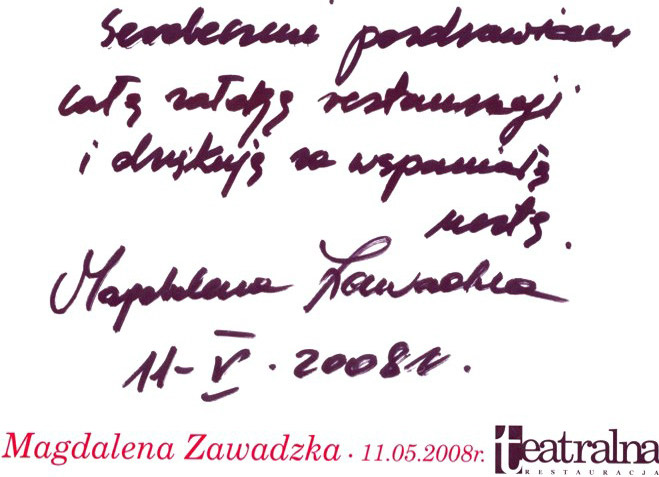 Serdecznie pozdrawiam
całą załogę restauracji
i dziękuję za wspaniałą
ucztę.
Magdalena Zawadzka
11-V.2008r.
Magdalena Zawadzka · 11.05.2008r.
teatralna
RESTAURACJA